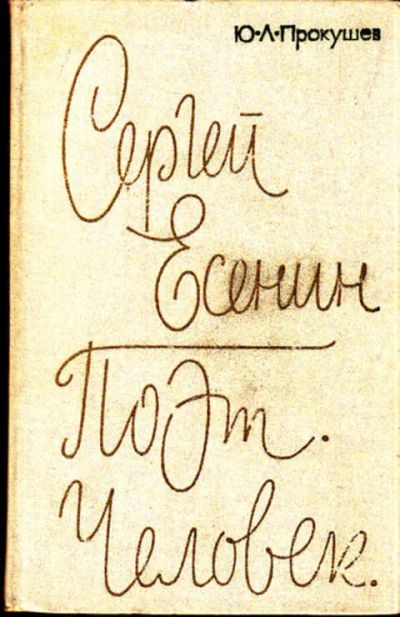 Ю•Л•Прокушев
Сергей
Есенин
Поэт.
Человек.